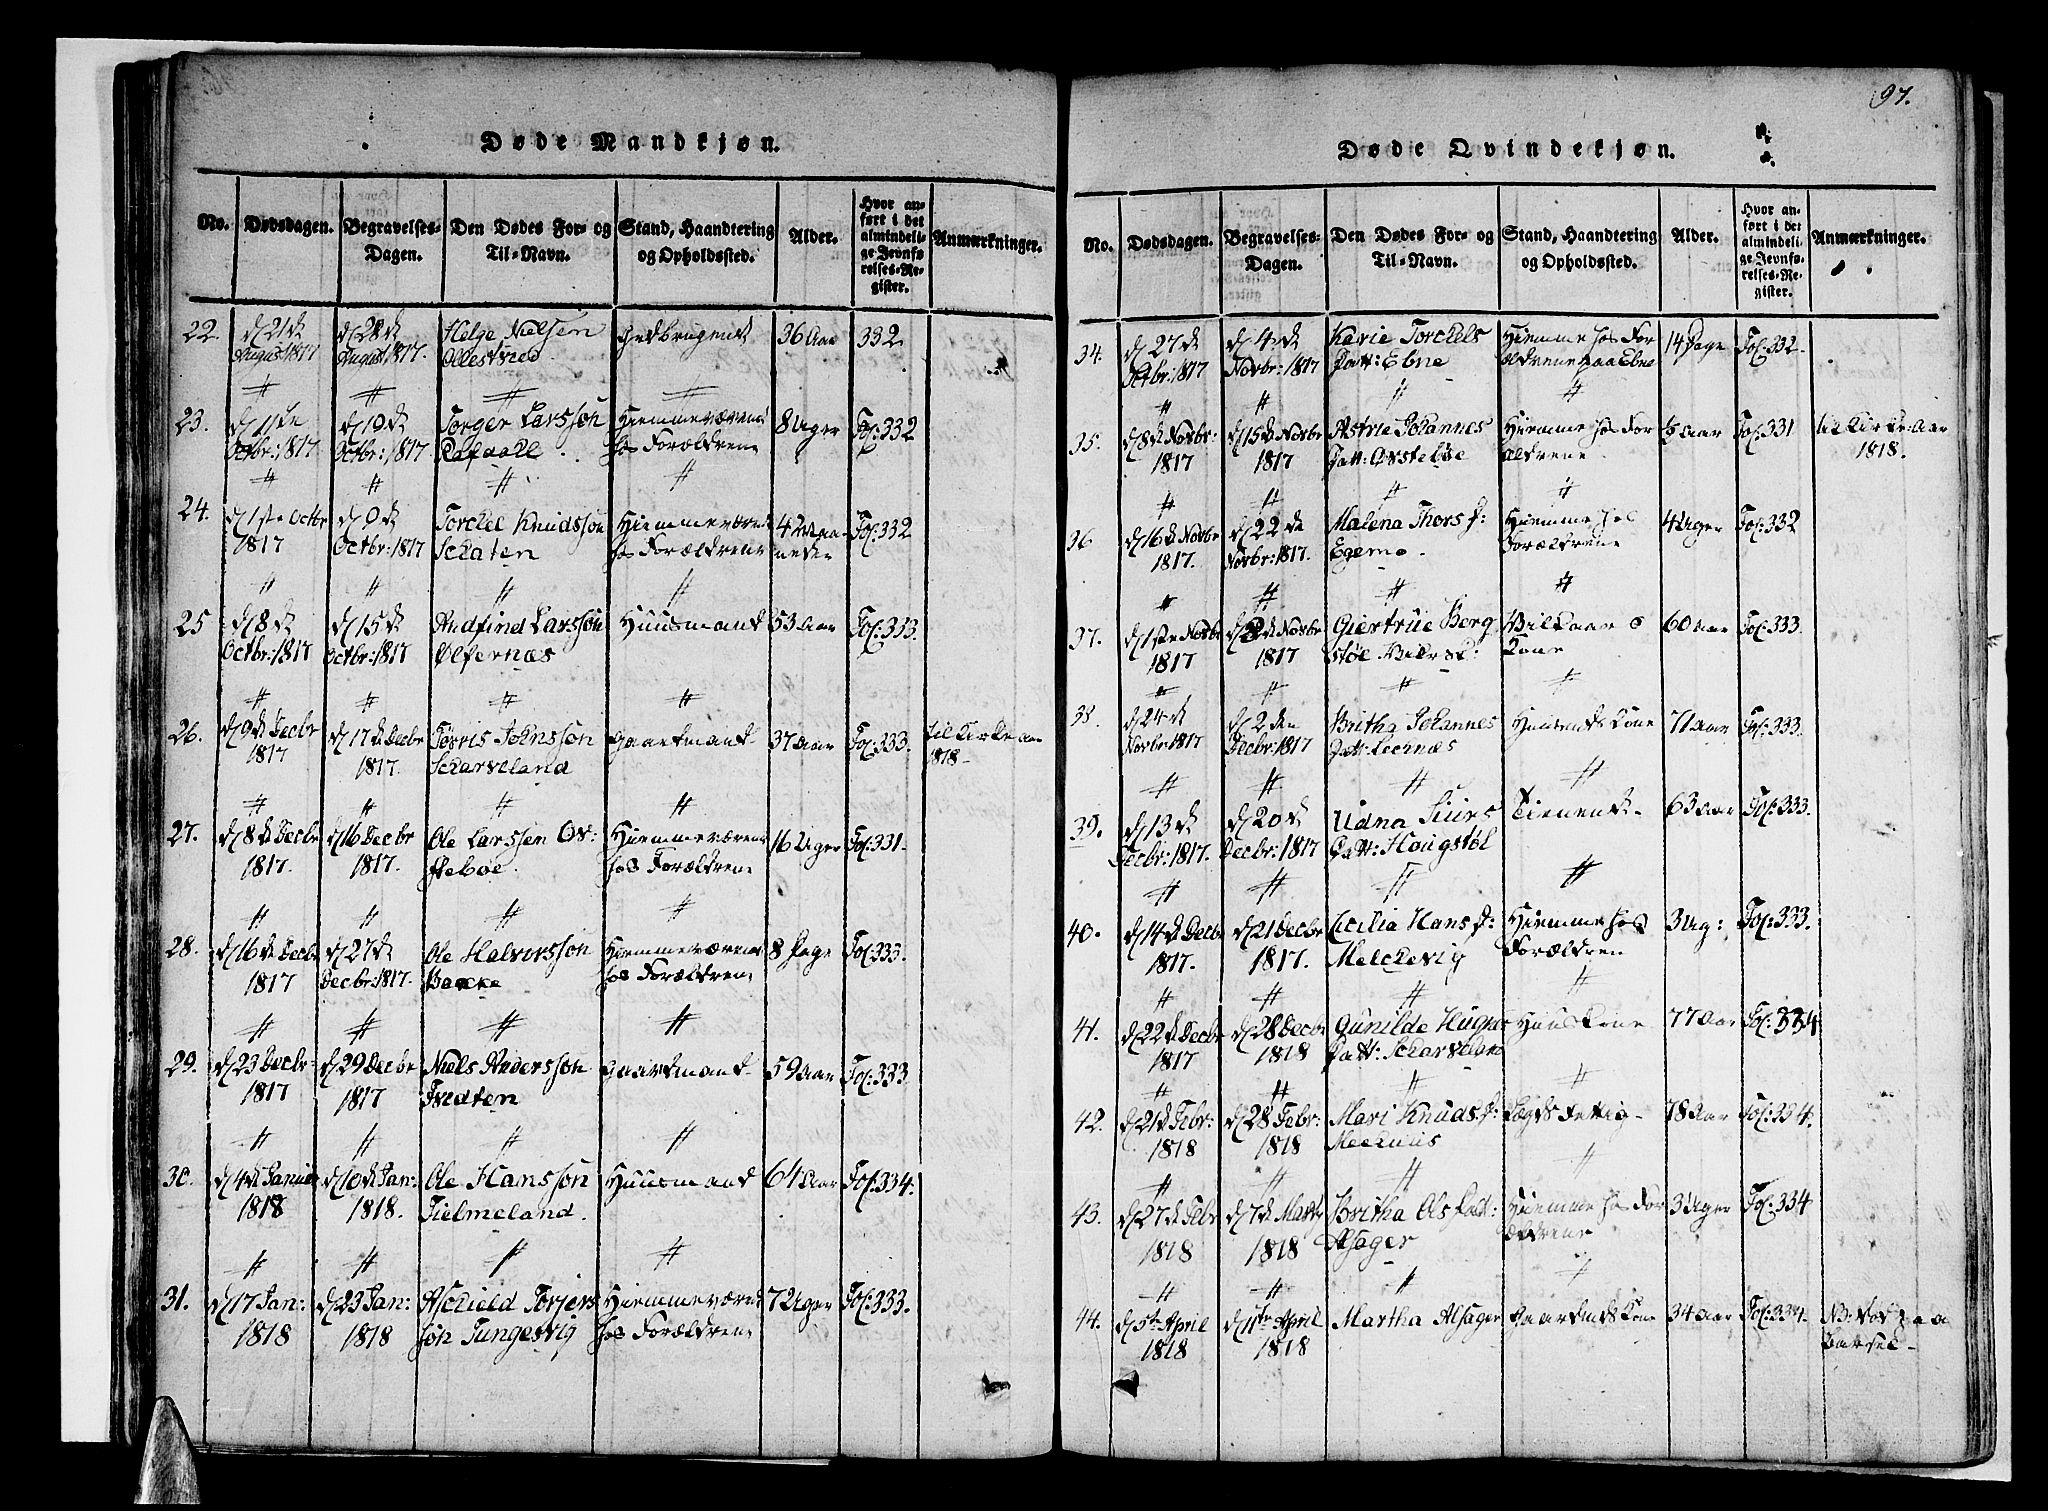 97.
Døde Mandkjøn.
No. Dødsdagen. Begravelses-Dagen. Den Dødes For- og Til-Navn. Stand, Haandtering og Opholdssted. Alder. Hvor anført i det almindelige Jevnførelses-Register. Anmærkninger.
22. d 21d August 1817 d 28d August 1817. Helge Nielsen Ollestved 36 Aar 332
23. d 11te Octbr: 1817 d 19d Octbr: 1817 Torger Larssøn Rafaadl Hiemmeværend hos Forældrene 8 Uger Fol: 332
24. d 1ste Octbr 1817 d 9d Octbr: 1817 Torckel Knudssøn Schaten Hiemmeværend hos Forældrene 4 Maaneder Fol: 332
25 d 8d Octbr: 1817 d 15d Octbr: 1817 Andfind Larssøn Ølfernæs Huusmand 53 Aar Fol: 333.
26. d 9d Decbr 1817 d 17d Decbr 1817. Tørris Johnssøn Scharveland Gaardmand 37 Aar Fol: 333. til Kirke an 1818
27. d 8d Decbr 1817. d 16 Decbr 1817. Ole Larssen Ovsteboe. Hiemmeværend hos Forældrene 16 Uger Fol: 331.
28. d 16d Decbr 1817 d 27d Decbr: 1817. Ole Halvorssøn Backe Hiemmeværend hos Forældrene 8 Dage Fol: 333.
29. d 23 Decbr: 1817 d 29 Decbr 1817 Niels Anderssøn Tvedten Gaardmand 59 Aar Fol: 333
30. d 4d Januar 1818 d 10d Jan: 1818. Ole Hanssøn Tielmeland. Huusmand 64 Aar Fol: 334.
31. d 17 Jan: 1818 d 23 Jan: 1818 Aschield Torjers søn Tungesvig Hiemmeværend hos Forældrene 7 Uger Fol: 333.
Døde Qvindekjøn.
No. Dødsdagen. Begravelses-Dagen. Den Dødes For- og Til-Navn. Stand, Haandtering og Opholdssted. Alder. Hvor anført i det almindelige Jevnførelses-Register. Anmærkninger.
34. d 27d Octbr: 1817 d 4d Novbr: 1817 Karie Torckels Datt: Ebne Hiemme hos Forældrene paa Ebne 14 Dage Fol: 332.
35. d 8d Novbr: 1817 d 15d Novbr 1817 Astrie Johannes Datt: Ovsteboe Hiemme hos Forældrene Aar Fol: 331 til Kirke: Aar 1818.
36 d 16d Novbr 1817. d 22de Novbr: 1817. Malena Thors D: Egemo Hiemme hos Forældrene 4 Uger Fol: 332
37. d 1ste Novbr 1817 Novbr 1817 Giertrue Bergstøl Vilkaars Kone 60 Aar Fol: 333.
38. d 24d Novbr: 1817 d 2den Decbr: 1817 Britha Johannes Datt: Lechnæs Huusmds Kone 71 Aar Fol: 333.
39. d 13d Decbr: 1817. d 20d Decbr: 1817 Udna Siurs Datt: Hougstøl Tienende 63 Aar Fol: 333.
40. d 14d Decbr 1817. d 21 Decbr 1817. Cecilia Hans D: Melchevig Hiemme hos Forældren 3 Ug: Fol: 333.
41. d 22d Decbr 1817 d 28 Decbr 1818 Gunilde Datt: Scharveland Huus Kone 77 Aar Fol: 334
42. d 21d Febr: 1818 d 28 Febr: 1818 Mari Knuds D: Lægds Fattig 78 Aar Fol: 334.
43. d 27d Febr 1818 d 7d Marty 1818 Britha Ols Dat: Alsager Hiemme hos Forældrene 3 Uger Fol: 334
44. d 5te April 1818 d 11te April 1818 Martha Alsager Gaardmds Kone 34 Aar Fol: 334. NB: død paa Barsel